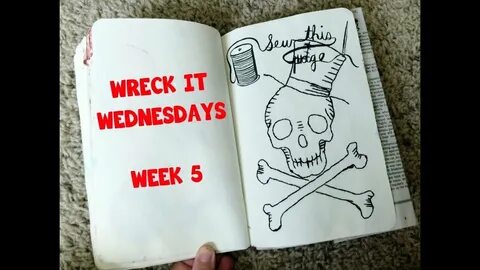 WRECK IT
WEDNESDAYS
WEEK 5
Sew this
page